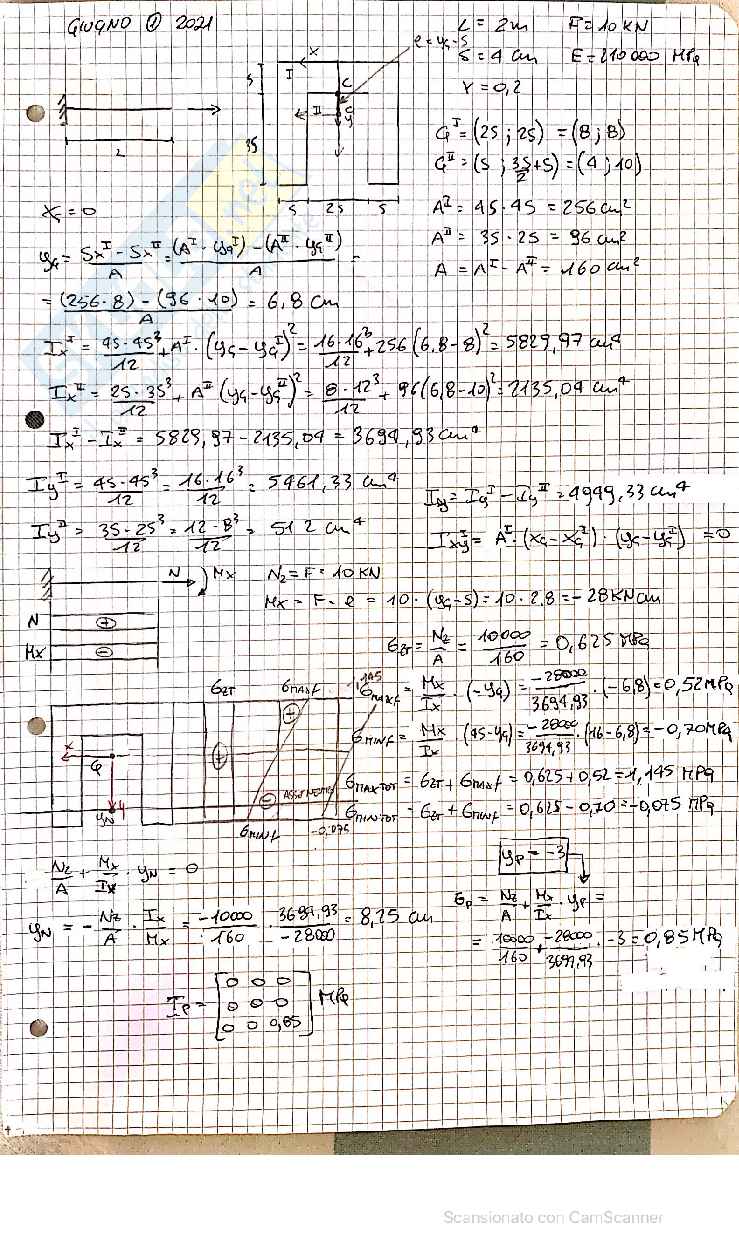 GIUGNO ① 2021
L = 2m F = 10 KN
S = 4 cm E = 210000 MPa
γ = 0,2
e = yG - S
X
I
C
II
G
y
S
3S
S 2S S
L
Gᴵ = (2S ; 2S) = (8 ; 8)
Gᴵᴵ = (S ; 3S/2 + S) = (4 ; 10)
Aᴵ = 4S · 4S = 256 cm²
Aᴵᴵ = 3S · 2S = 96 cm²
A = Aᴵ - Aᴵᴵ = 160 cm²
XG = 0
yG = (Sxᴵ - Sxᴵᴵ)/A = ((Aᴵ · yGᴵ) - (Aᴵᴵ · yGᴵᴵ))/A =
= ((256 · 8) - (96 · 10))/A = 6,8 cm
Ixᴵ = 4S·4S³/12 + Aᴵ · (yG - yGᴵ)² = 16·16³/12 + 256 (6,8 - 8)² = 5829,97 cm⁴
Ixᴵᴵ = 2S·3S³/12 + Aᴵᴵ (yG - yGᴵᴵ)² = 8·12³/12 + 96 (6,8 - 10)² = 2135,04 cm⁴
Ixᴵ - Ixᴵᴵ = 5829,97 - 2135,04 = 3694,93 cm⁴
Iyᴵ = 4S·4S³/12 = 16·16³/12 = 5461,33 cm⁴
Iy = Iyᴵ - Iyᴵᴵ = 4949,33 cm⁴
Iyᴵᴵ = 3S·2S³/12 = 12·8³/12 = 512 cm⁴
Ixyᴵ = Aᴵ · (xG - xGᴵ) · (yG - yGᴵ) = 0
N Mx
Nz = F = 10 KN
Mx = F · e = 10 · (yG - S) = 10 · 2,8 = -28 KNcm
N +
Mx -
σzT = Nz/A = 10000/160 = 0,625 MPa
σzT σMAXf 1,145
σMAXf = Mx/Ix · (-yG) = -28000/3694,93 · (-6,8) = 0,52 MPa
σMINf = Mx/Ix (4S - yG) = -28000/3694,93 · (16 - 6,8) = -0,70 MPa
σMAXTOT = σzT + σMAXf = 0,625 + 0,52 = 1,145 MPa
σMINTOT = σzT + σMINf = 0,625 - 0,70 = -0,075 MPa
X
G
yN
y
ASSE NEUTRO
σMINf -0,075
Nz/A + Mx/Ix · yN = 0
yP = -3
yN = - Nz/A · Ix/Mx = -10000/160 · 3694,93/-28000 = 8,25 cm
σP = Nz/A + Mx/Ix · yP =
= 10000/160 + -28000/3694,93 · -3 = 0,85 MPa
TP = [0 0 0
0 0 0
0 0 0,85] MPa
Scansionato con CamScanner